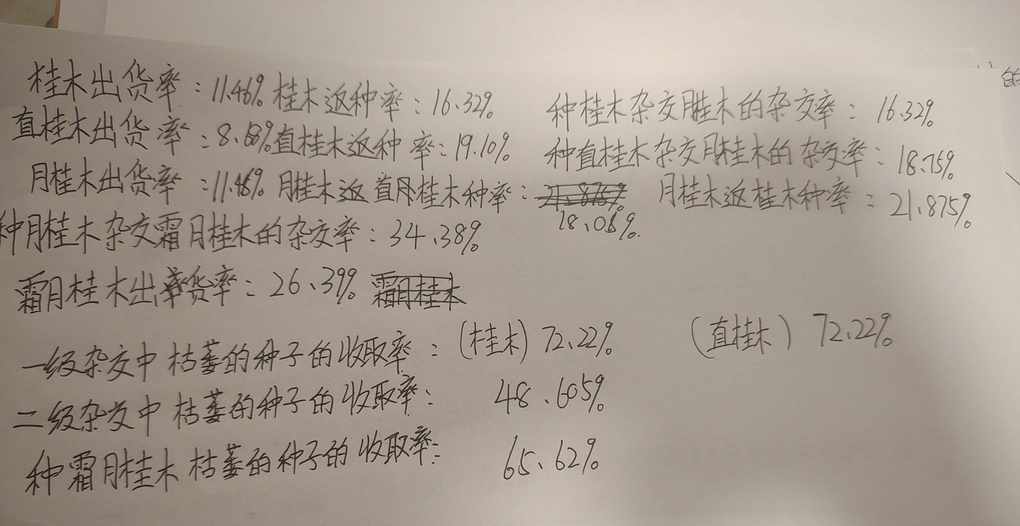 桂木出货率：11.46% 桂木返种率：16.32% 种桂木杂交月桂木的杂交率：16.32%
直桂木出货率：8.68% 直桂木返种率：19.10% 种直桂木杂交月桂木的杂交率：18.75%
月桂木出货率：11.46% 月桂木返直月桂木种率：18.06% 月桂木返桂木种率：21.875%
种月桂木杂交霜月桂木的杂交率：34.38%
霜月桂木出货率：26.39% 霜月桂木
一级杂交中枯萎的种子的收取率：（桂木）72.22% （直桂木）72.22%
二级杂交中枯萎的种子的收取率：48.605%
种霜月桂木枯萎的种子的收取率：65.62%
的